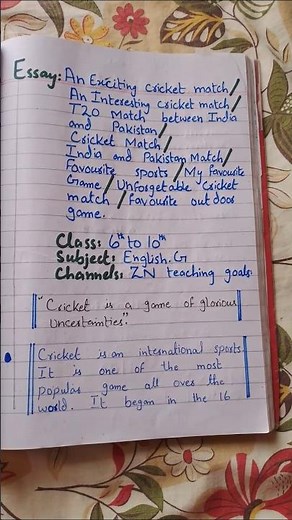 Essay: An Exciting cricket match/
An Interesting cricket match/
T20 Match between India
and Pakistan/
Cricket Match/
India and Pakistan Match/
Favourite sports/My favourite
Game/Unforgetable Cricket
match/favourite outdoor
game.
Class: 6th to 10th
Subject: English.G
Channels: ZN teaching goals
"Cricket is a game of glorious
Uncertainties".
Cricket is an international sports.
It is one of the most
popular game all over the
world. It began in the 16